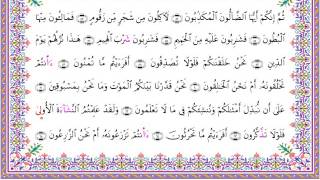 ثُمَّ إِنَّكُمْ أَيُّهَا ٱلضَّآلُّونَ ٱلْمُكَذِّبُونَ ۝ لَأَكِلُونَ مِن شَجَرٍ مِّن زَقُّومٍ ۝ فَمَالِـُٔونَ مِنْهَا
ٱلْبُطُونَ ۝ فَشَٰرِبُونَ عَلَيْهِ مِنَ ٱلْحَمِيمِ ۝ فَشَٰرِبُونَ شُرْبَ ٱلْهِيمِ ۝ هَٰذَا نُزُلُهُمْ يَوْمَ
ٱلدِّينِ ۝ نَحْنُ خَلَقْنَٰكُمْ فَلَوْلَا تُصَدِّقُونَ ۝ أَفَرَءَيْتُم مَّا تُمْنُونَ ۝ ءَأَنتُمْ
تَخْلُقُونَهُۥٓ أَمْ نَحْنُ ٱلْخَٰلِقُونَ ۝ نَحْنُ قَدَّرْنَا بَيْنَكُمُ ٱلْمَوْتَ وَمَا نَحْنُ بِمَسْبُوقِينَ
۝ عَلَىٰٓ أَن نُّبَدِّلَ أَمْثَٰلَكُمْ وَنُنشِئَكُمْ فِى مَا لَا تَعْلَمُونَ ۝ وَلَقَدْ عَلِمْتُمُ ٱلنَّشْأَةَ ٱلْأُولَىٰ
فَلَوْلَا تَذَكَّرُونَ ۝ أَفَرَءَيْتُم مَّا تَحْرُثُونَ ۝ ءَأَنتُمْ تَزْرَعُونَهُۥٓ أَمْ نَحْنُ ٱلزَّٰرِعُونَ ۝